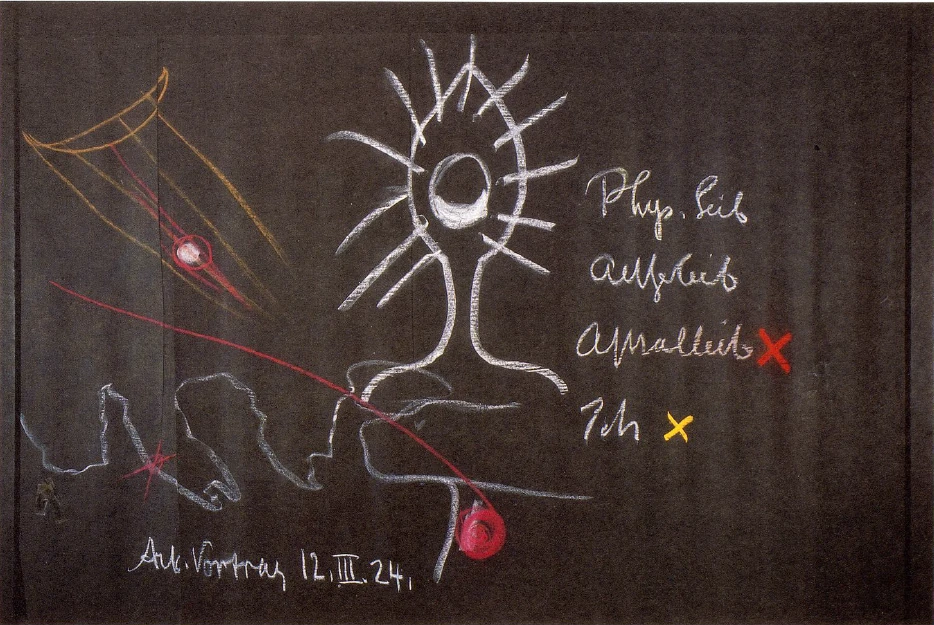 Phys. Leib
Aetherleib
Astralleib
Ich
Arb. Vortrag 12. III. 24.